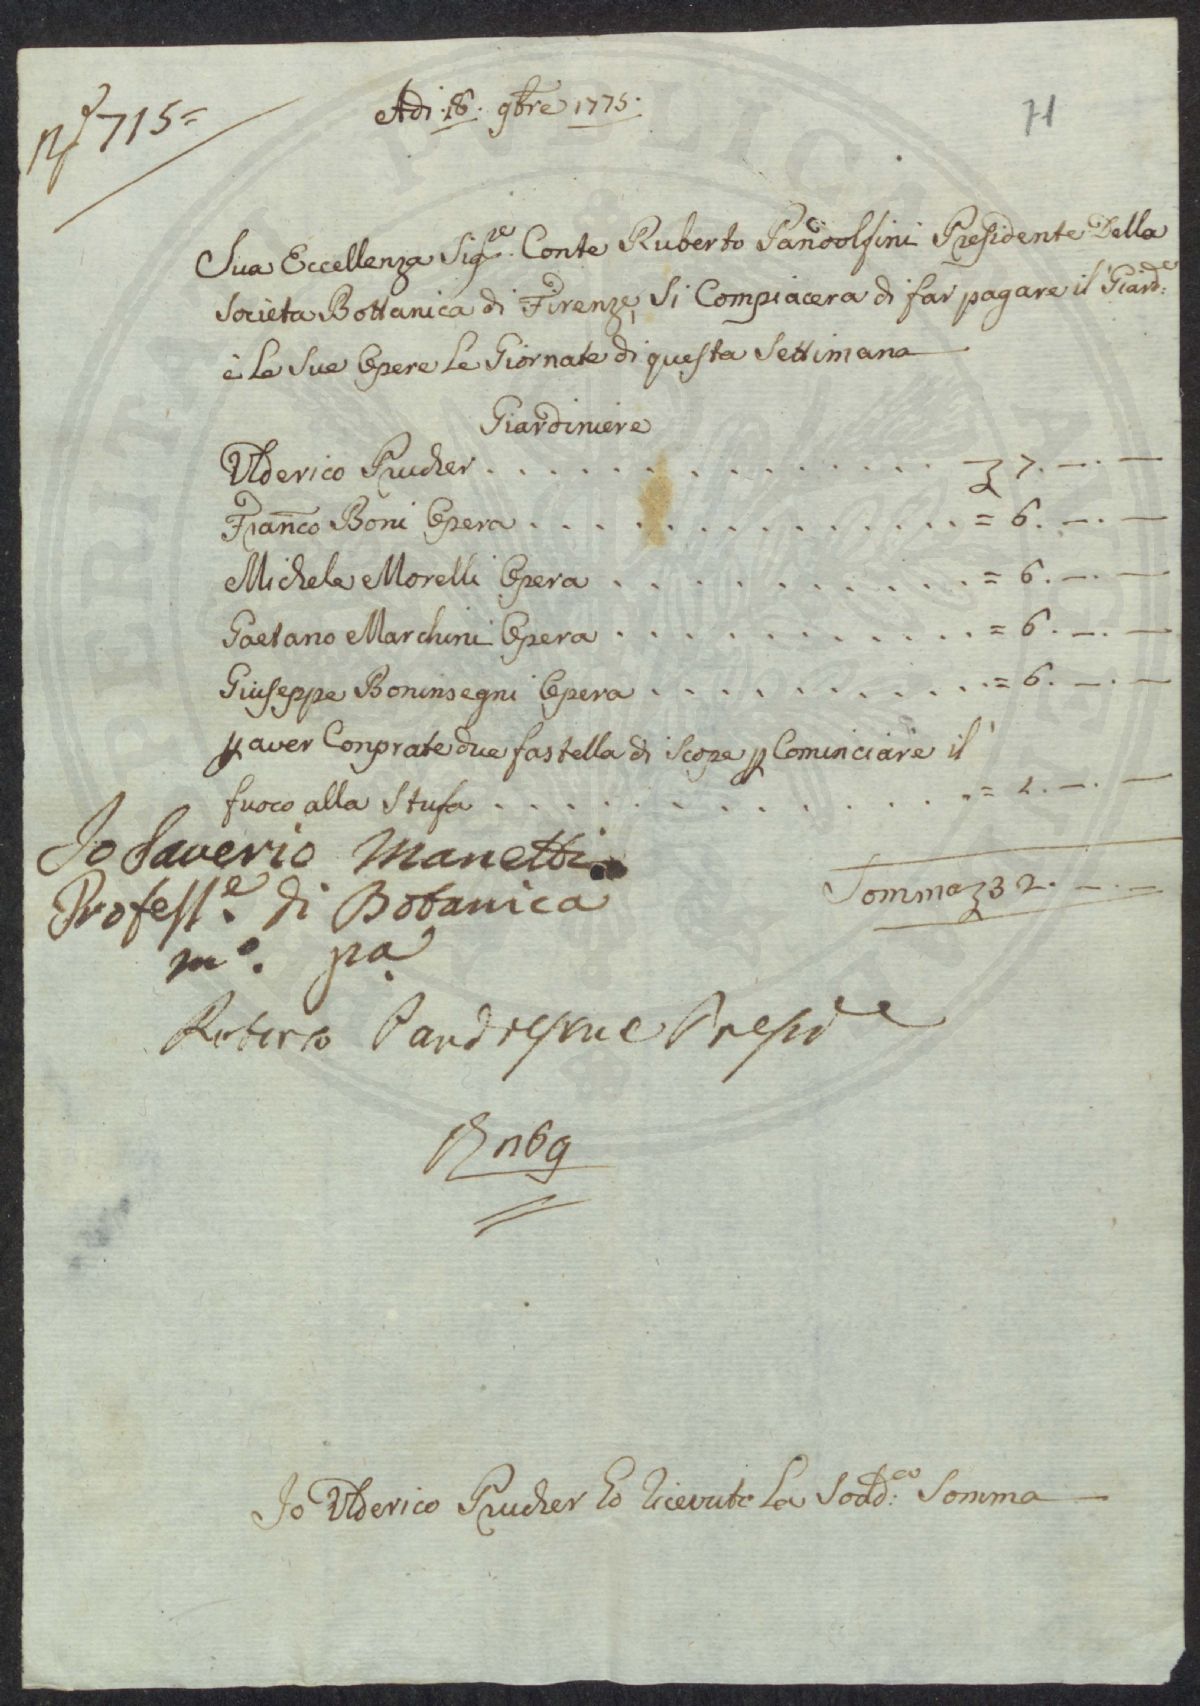 N.° 715=
Adi 18. 9bre 1775.
71
Sua Eccellenza Sig.re Conte Ruberto Pandolfini Presidente Della
Societa Bottanica di Firenze, Si Compiacera di far pagare il Giard.e
è Le Sue Opere Le Giornate di questa Settimana
Giardiniere
Ulderico Prucher . . . . . . . . . . . . £ 7. —. —
Franco Boni Opera . . . . . . . . . . . . = 6. —. —
Michele Morelli Opera . . . . . . . . . . = 6. —. —
Gaetano Marchini Opera . . . . . . . . . . = 6. —. —
Giuseppe Boninsegni Opera . . . . . . . . . = 6. —. —
p aver Conprate due fastella di Scope p Cominciare il
fuoco alla Stufa . . . . . . . . . . . . = 1. —. —
Somma £ 32. —. —
Io Saverio Manetti
Profess.e di Botanica
m.o pa
Roberto Pandolfini Presid.e
n69
Io Ulderico Prucher ho Ricevuto La Sodd.a Somma